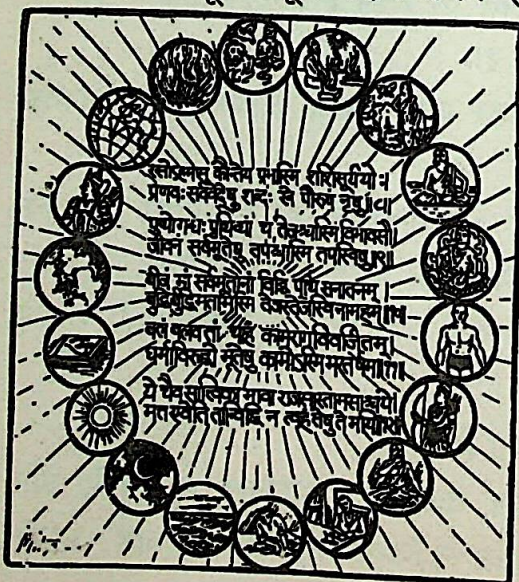 रसोऽहमप्सु कौन्तेय प्रभास्मि शशिसूर्ययोः।
प्रणवः सर्ववेदेषु शब्दः खे पौरुषं नृषु॥८॥
पुण्योगन्धः पृथिव्यां च तेजश्चास्मि विभावसौ।
जीवनं सर्वभूतेषु तपश्चास्मि तपस्विषु॥९॥
बीजं मां सर्वभूतानां विद्धि पार्थ सनातनम्।
बुद्धिर्बुद्धिमतामस्मि तेजस्तेजस्विनामहम्॥१०॥
बलं बलवतां चाहं कामरागविवर्जितम्।
धर्माविरुद्धो भूतेषु कामोऽस्मि भरतर्षभ॥११॥
ये चैव सात्त्विका भावा राजसास्तामसाश्चये।
मत्त एवेति तान्विद्धि न त्वहं तेषु ते मयि॥१२॥